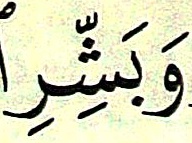 وَبَشِّرِ ا